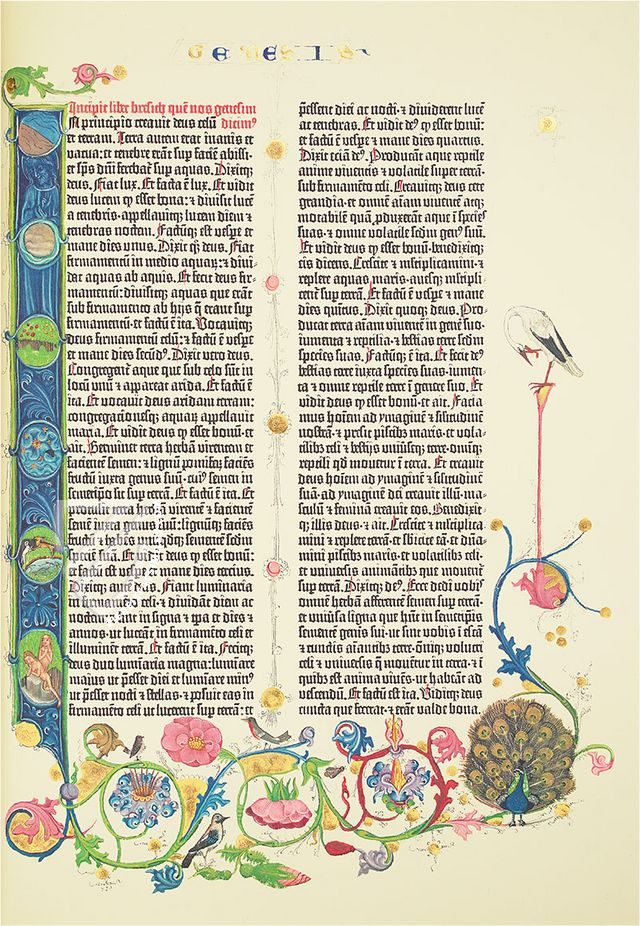 GENESIS
Incipit liber bresith quē nos genesim
dicim⁹
In principio creavit deus celū
et terram. Terra autem erat inanis et
vacua: et tenebre erāt sup faciē abissi:
et sp̄s dn̄i ferebat̄ sup aquas. Dixitqꝫ
deus. Fiat lux. Et facta ē lux. Et vidit
deus lucem ꝙ esset bona: et divisit lucē
a tenebris·appellavitqꝫ lucem diem et
tenebras noctem. Factūqꝫ est vespe et
mane dies unus. Dixit qꝫ deus. Fiat
firmamentū in medio aquaꝝ: et divi-
dat aquas ab aquis. Et fecit deus fir-
mamentū: divisitqꝫ aquas que erāt
sub firmamento ab hijs q̄ erant sup
firmamentū: et factū ē ita. Vocavitqꝫ
deus firmamentū celū: et factū ē vespe
et mane dies secūd⁹. Dixit vero deus.
Congregent̄ aque que sub celo sūt in
locū unū et appareat arida. Et factū ē
ita. Et vocavit deus aridam terram:
congregacionesqꝫ aquaꝝ appellavit
maria. Et vidit deus ꝙ esset bonū·et
ait. Germinet terra herbā virentem et
facientē semen: et lignū pomiferū faciēs
fructū iuxta genus suū·cui⁹ semen in
semetipo sit sup terrā. Et factū ē ita. Et
protulit terra herbā virentē et facientē
semē iuxta genus suū: lignūqꝫ faciēs
fructū et habēs unūqdqꝫ sementē scdm
speciē suā. Et vidit deus ꝙ esset bonū:
et factū est vespe et mane dies tercius.
Dixitqꝫ autē deus. Fiant luminaria
in firmamēto celi·et dividant diem ac
noctem: et sint in signa et tpa et dies et
annos·ut luceāt in firmamēto celi et
illuminēt terrā. Et factū ē ita. Fecitqꝫ
deus duo lumiaria magna: lumiare
maius ut pesset diei et lumiare min⁹
ut pesset nocti et stellas·et posuit eas in
firmamēto celi ut lucerent sup terrā: et
pessent diei ac nocti·et dividerent lucē
ac tenebras. Et vidit de⁹ ꝙ esset bonū:
et factū ē vespe et mane dies quartus.
Dixit eciā de⁹. Producāt aque reptile
anime viventis et volatile super terrā·
sub firmamēto celi. Creavitqꝫ deus cete
grandia·et omnē aīam viventē atqꝫ
motabilē quā pduxerāt aque ī species
suas·et omne volatile scdm gen⁹ suū.
Et vidit deus ꝙ esset bonū·benedixitqꝫ
eis dicens. Crescite et multiplicamini·et
replete aquas maris·avesqꝫ multipli-
cent̄ sup terrā. Et factū ē vespe et mane
dies quītus. Dixit quoqꝫ deus. Pro-
ducat terra aīam viventē in genē suo·
iumenta et reptilia·et bestias terre scdm
species suas. Factūqꝫ ē ita. Et fecit de⁹
bestias terre iuxta species suas·iumen-
ta et omne reptile terre ī genere suo. Et
vidit deus ꝙ esset bonū·et ait. Facia-
mus hoīem ad ymaginē et similitudinē
nostrā·et presit piscibꝫ maris·et vola-
tilibꝫ celi et bestijs universeqꝫ terre·omniqꝫ
reptili qd movetur ī terra. Et creavit
deus hoīem ad ymaginē et similitudinē
suā·ad ymaginē dei creavit illū·ma-
sculū et feminā creavit eos. Benedixit-
qꝫ illis deus·et ait. Crescite et multiplica-
mini et replete terrā·et subicite eā·et dn̄a-
mini piscibus maris·et volatilibus celi·
et universis animātibus que moventur
sup terrā. Dixitqꝫ de⁹. Ecce dedi vobis
omnē herbā afferentē semen sup terrā·
et universa ligna que hn̄t in semetipis
sementē genis sui·ut sint vobis ī escā
et cunctis aīantibus terre·oīniqꝫ volucri
celi et universis q̄ movent̄ur in terra·et ī
quibꝫ est anima vivēs·ut habeāt ad
vescendū. Et factū est ita. Viditqꝫ deus
cuncta que fecerat·et erāt valde bona.